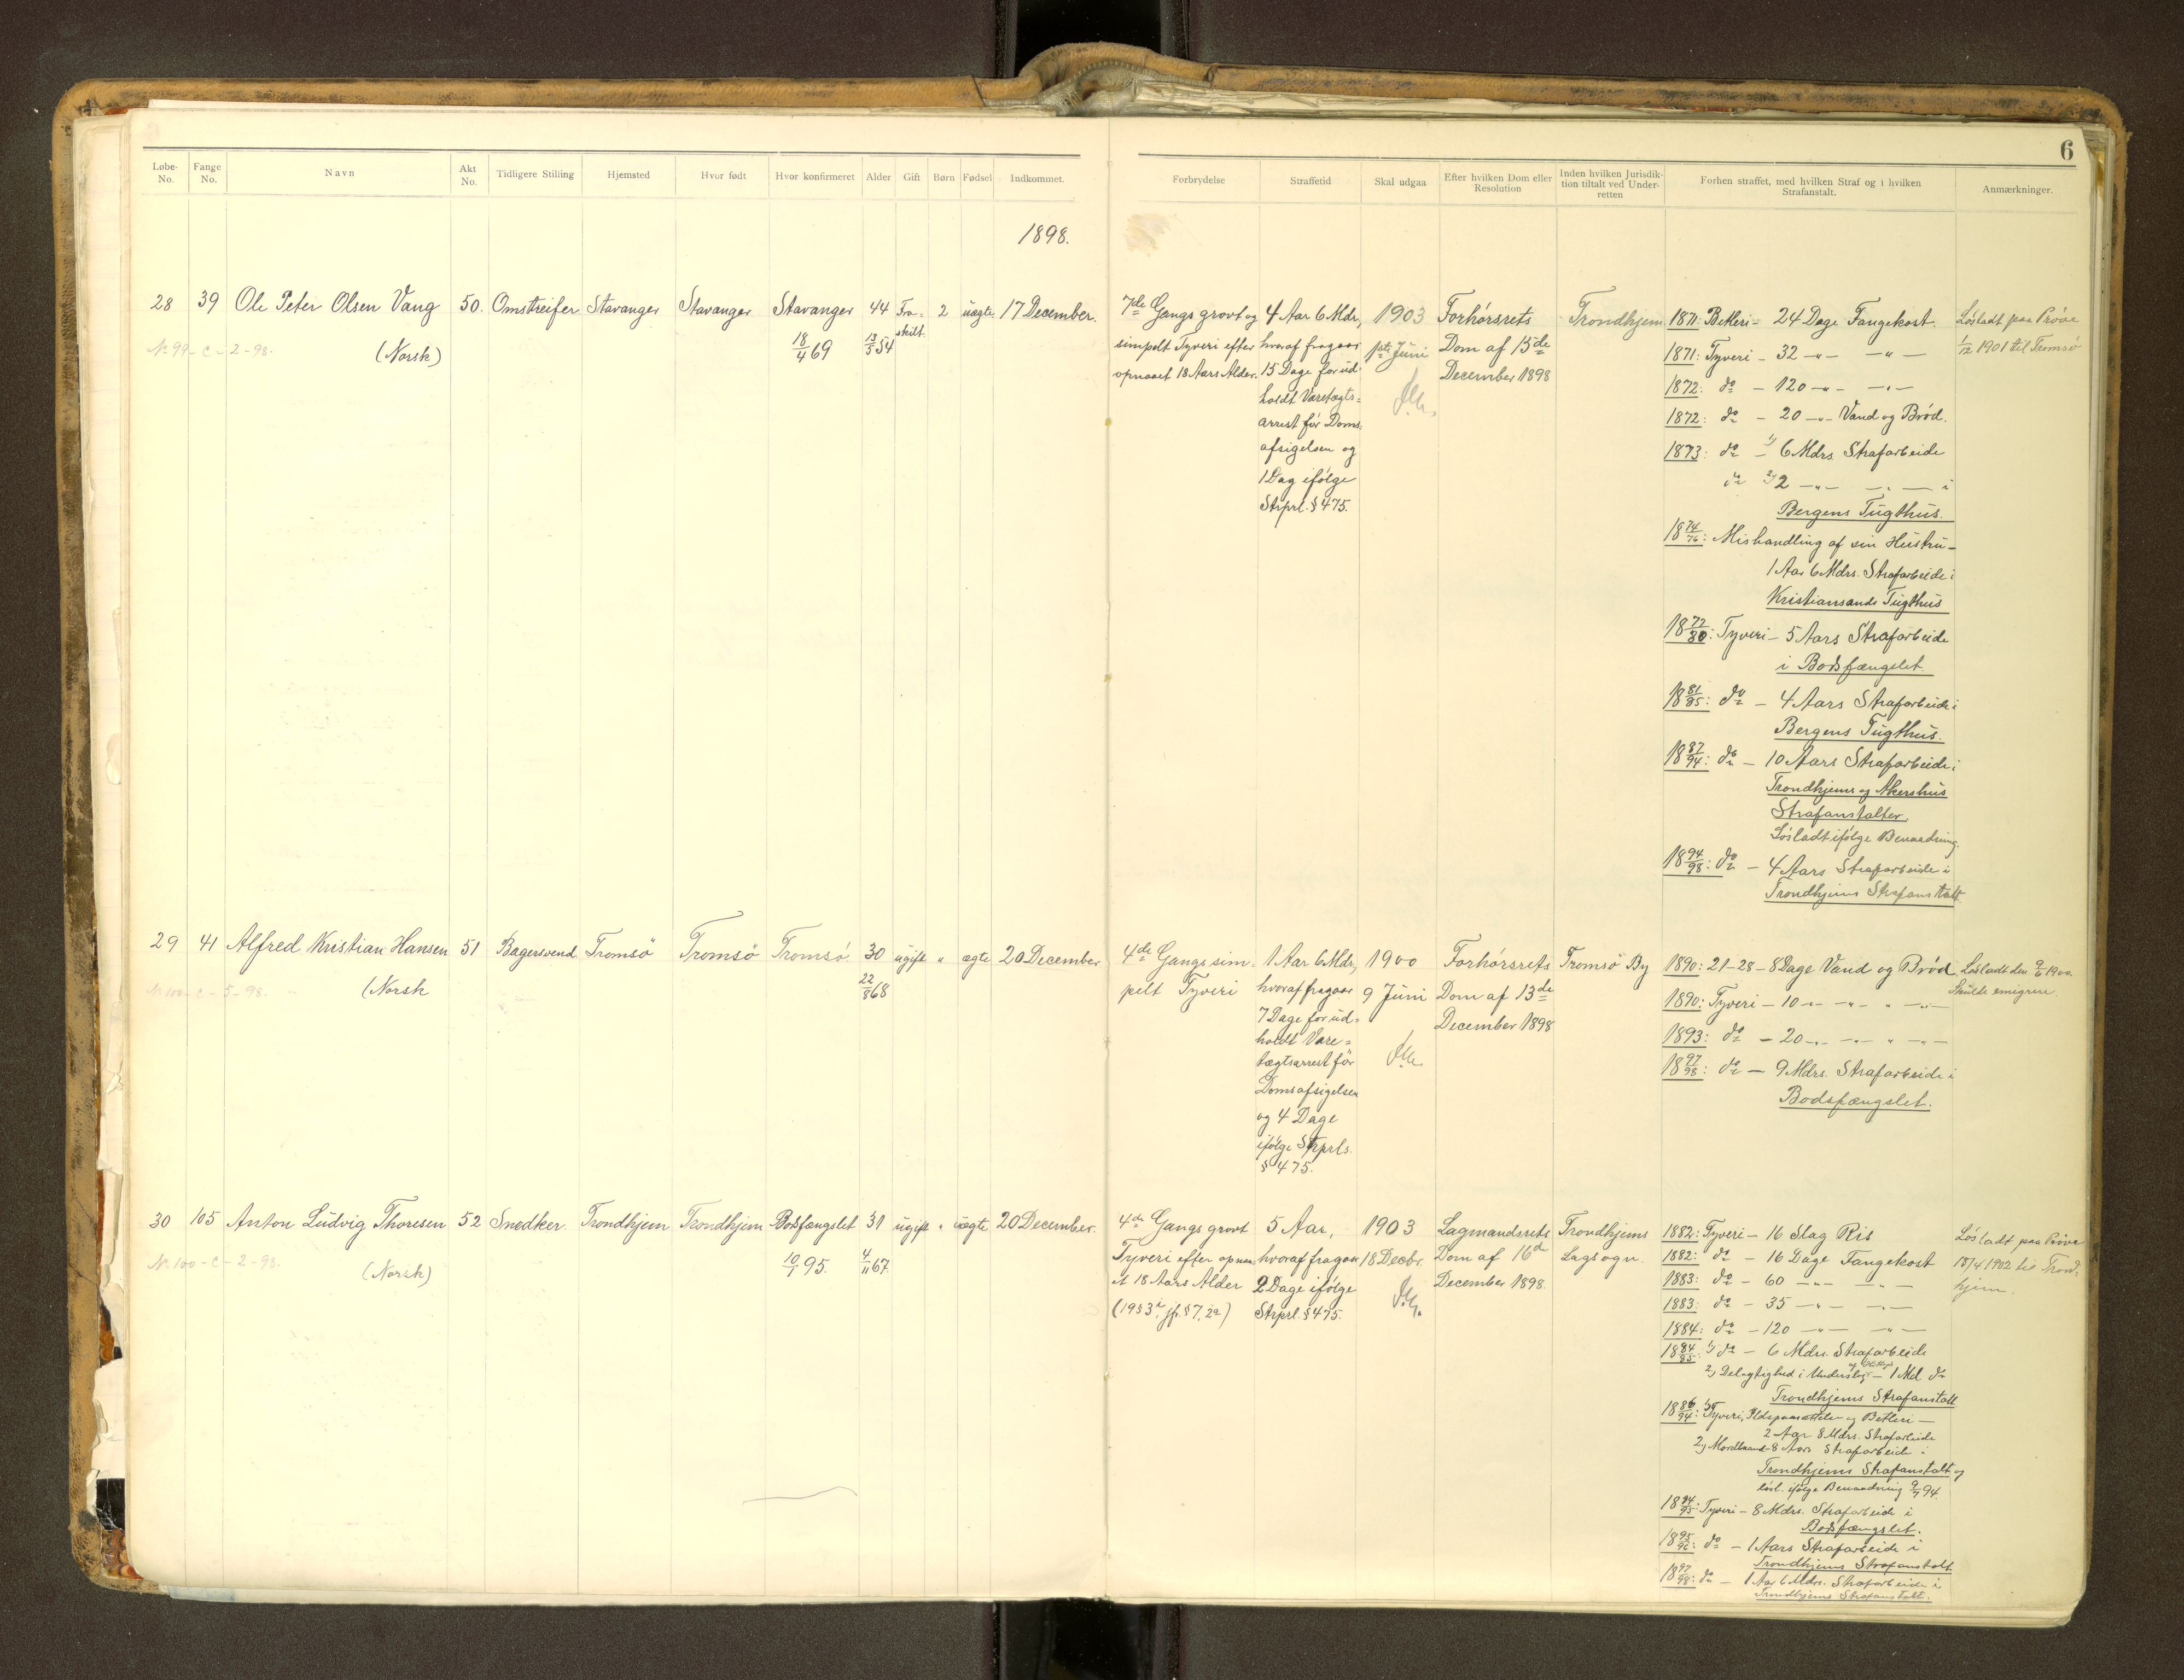 6
Løbe-No.
Fange No.
Navn
Akt No.
Tidligere Stilling
Hjemsted
Hvor født
Hvor konfirmeret
Alder
Gift
Børn
Fødsel
Indkommet.
Forbrydelse
Straffetid
Skal udgaa
Efter hvilken Dom eller Resolution
Inden hvilken Jurisdik-tion tiltalt ved Under-retten
Forhen straffet, med hvilken Straf og i hvilken Strafanstalt.
Anmærkninger.
1898.
28
39
Ole Peter Olsen Vang
(Norsk)
No 99 - C - 2 - 98.
50.
Omstreifer
Stavanger
Stavanger
Stavanger
18/4 69
44
13/5 54
Fra-
skilt.
2
uægte
17 December.
7de Gangs grovt og
simpelt Tyveri efter
opnaaet 18 Aars Alder.
4 Aar 6 Mdr,
hvoraf fragaar
15 Dage for ud-
holdt Varetægts-
arrest før Doms-
afsigelsen og
1 Dag ifølge
Strprl. § 475.
1903
1ste Juni
Forhørsrets
Dom af 15de
December 1898
Trondhjem
1871: Betleri - 24 Dage Fangekost.
1871: Tyveri - 32 -"- -"-
1872: do - 120 -"- -"-
1872: do - 20 -"- Vand og Brød.
1873: do - 1) 6 Mdrs. Strafarbeide
do 2) 2 -"- -"- i
Bergens Tugthus.
18 74/76: Mishandling af sin Hustru -
1 Aar 6 Mdrs. Strafarbeide i
Kristiansands Tugthus
18 77/80: Tyveri - 5 Aars Strafarbeide
i Bodsfængslet.
18 81/85: do - 4 Aars Strafarbeide i
Bergens Tugthus.
18 87/94: do - 10 Aars Strafarbeide i
Trondhjems og Akershus
Strafanstalter.
Løsladt ifølge Benaadning.
18 94/98: do - 4 Aars Strafarbeide i
Trondhjems Strafanstalt.
Løsladt paa Prøve
1/12 1901 til Tromsø
29
41
Alfred Kristian Hansen
(Norsk
No 100 - C - 5 - 98.
51
Bagersvend
Tromsö
Tromsö
Tromsö.
30
22/8 68
ugift
"
ægte
20 December
4de Gangs sim-
pelt Tyveri
1 Aar 6 Mdr,
hvoraf fragaar
7 Dage for ud-
holdt Vare-
tægtsarrest før
Domsafsigelsen
og 4 Dage
ifølge Strprls.
§ 475.
1900
9 Juni
Forhørsrets
Dom af 13de
December 1898
Tromsö By
1890: 21-28-8 Dage Vand og Brød
1890: Tyveri - 10 -"- -"- " -"-
1893: do - 20 -"- -"- " -"-
18 97/98: do - 9 Mdrs. Strafarbeide i
Bodsfængslet.
Løsladt den 9/6 1900.
Skulde emigrere.
30
105
Anton Ludvig Thoresen
(Norsk)
No 100 - C - 2 - 98.
52
Snedker.
Trondhjem
Trondhjem
Bodsfængslet
10/1 95.
31
4/11 67.
ugift
"
uægte
20 December.
4de Gangs grovt
Tyveri efter opnaa-
et 18 Aars Alder
5 Aar,
hvoraf fragaar
2 Dage ifølge
Strprl. § 475.
1903
18 Decbr.
Lagmandsrets
Dom af 16de
December 1898.
Trondhjems
Lagsogn.
1882: Tyveri - 16 Slag Ris
1882: do - 16 Dage Fangekost
1883: do - 60 -"- -"-
1883: do - 35 -"- -"-
1884: do - 120 -"- -"-
18 84/85: 1) do - 6 Mdrs. Strafarbeide
2) Delagtighed i Underslag - 1 Md. do
Trondhjems Strafanstalt
18 86/94: 1) Tyveri, Ildspaasættelse og Betleri -
2 Aar 8 Mdrs. Strafarbeide
2) Mordbrand - 8 Aars Strafarbeide i
Trondhjems Strafanstalt og
løsl. ifølge Benaadning 9/7 94.
18 94/95: Tyveri - 8 Mdrs. Strafarbeide i
Bodsfængslet.
18 95/96: do - 1 Aars Strafarbeide i
Trondhjems Strafanstalt
18 97/98: do - 1 Aar 6 Mdrs. Strafarbeide i
Trondhjems Strafanstalt.
Løsladt paa Prøve
18/4 1902 til Trond-
hjem.